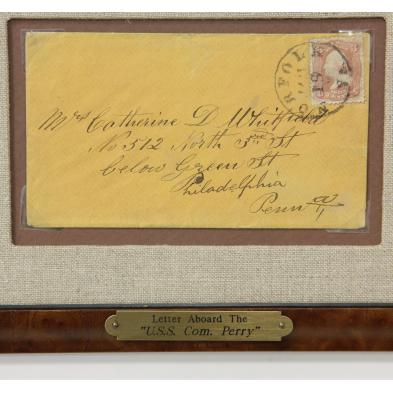 NORFOLK
VA
Mrs Catherine D Whitfield
No 512 North 3rd St
below Green St
Philadelphia
Penn a
Letter Aboard The
"U.S.S. Com. Perry"